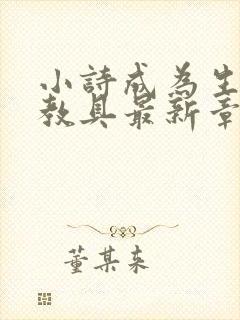 小詩成為生
教具最新章
董某來